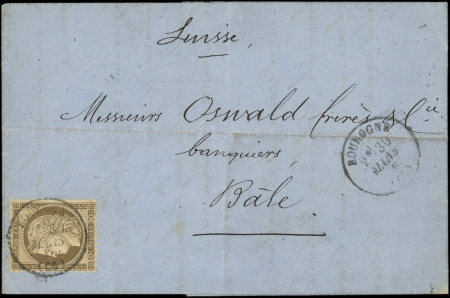 Suisse,
Messieurs Oswald frères & Cie
banquiers,
Bâle.
BOUROGNE
30
MARS